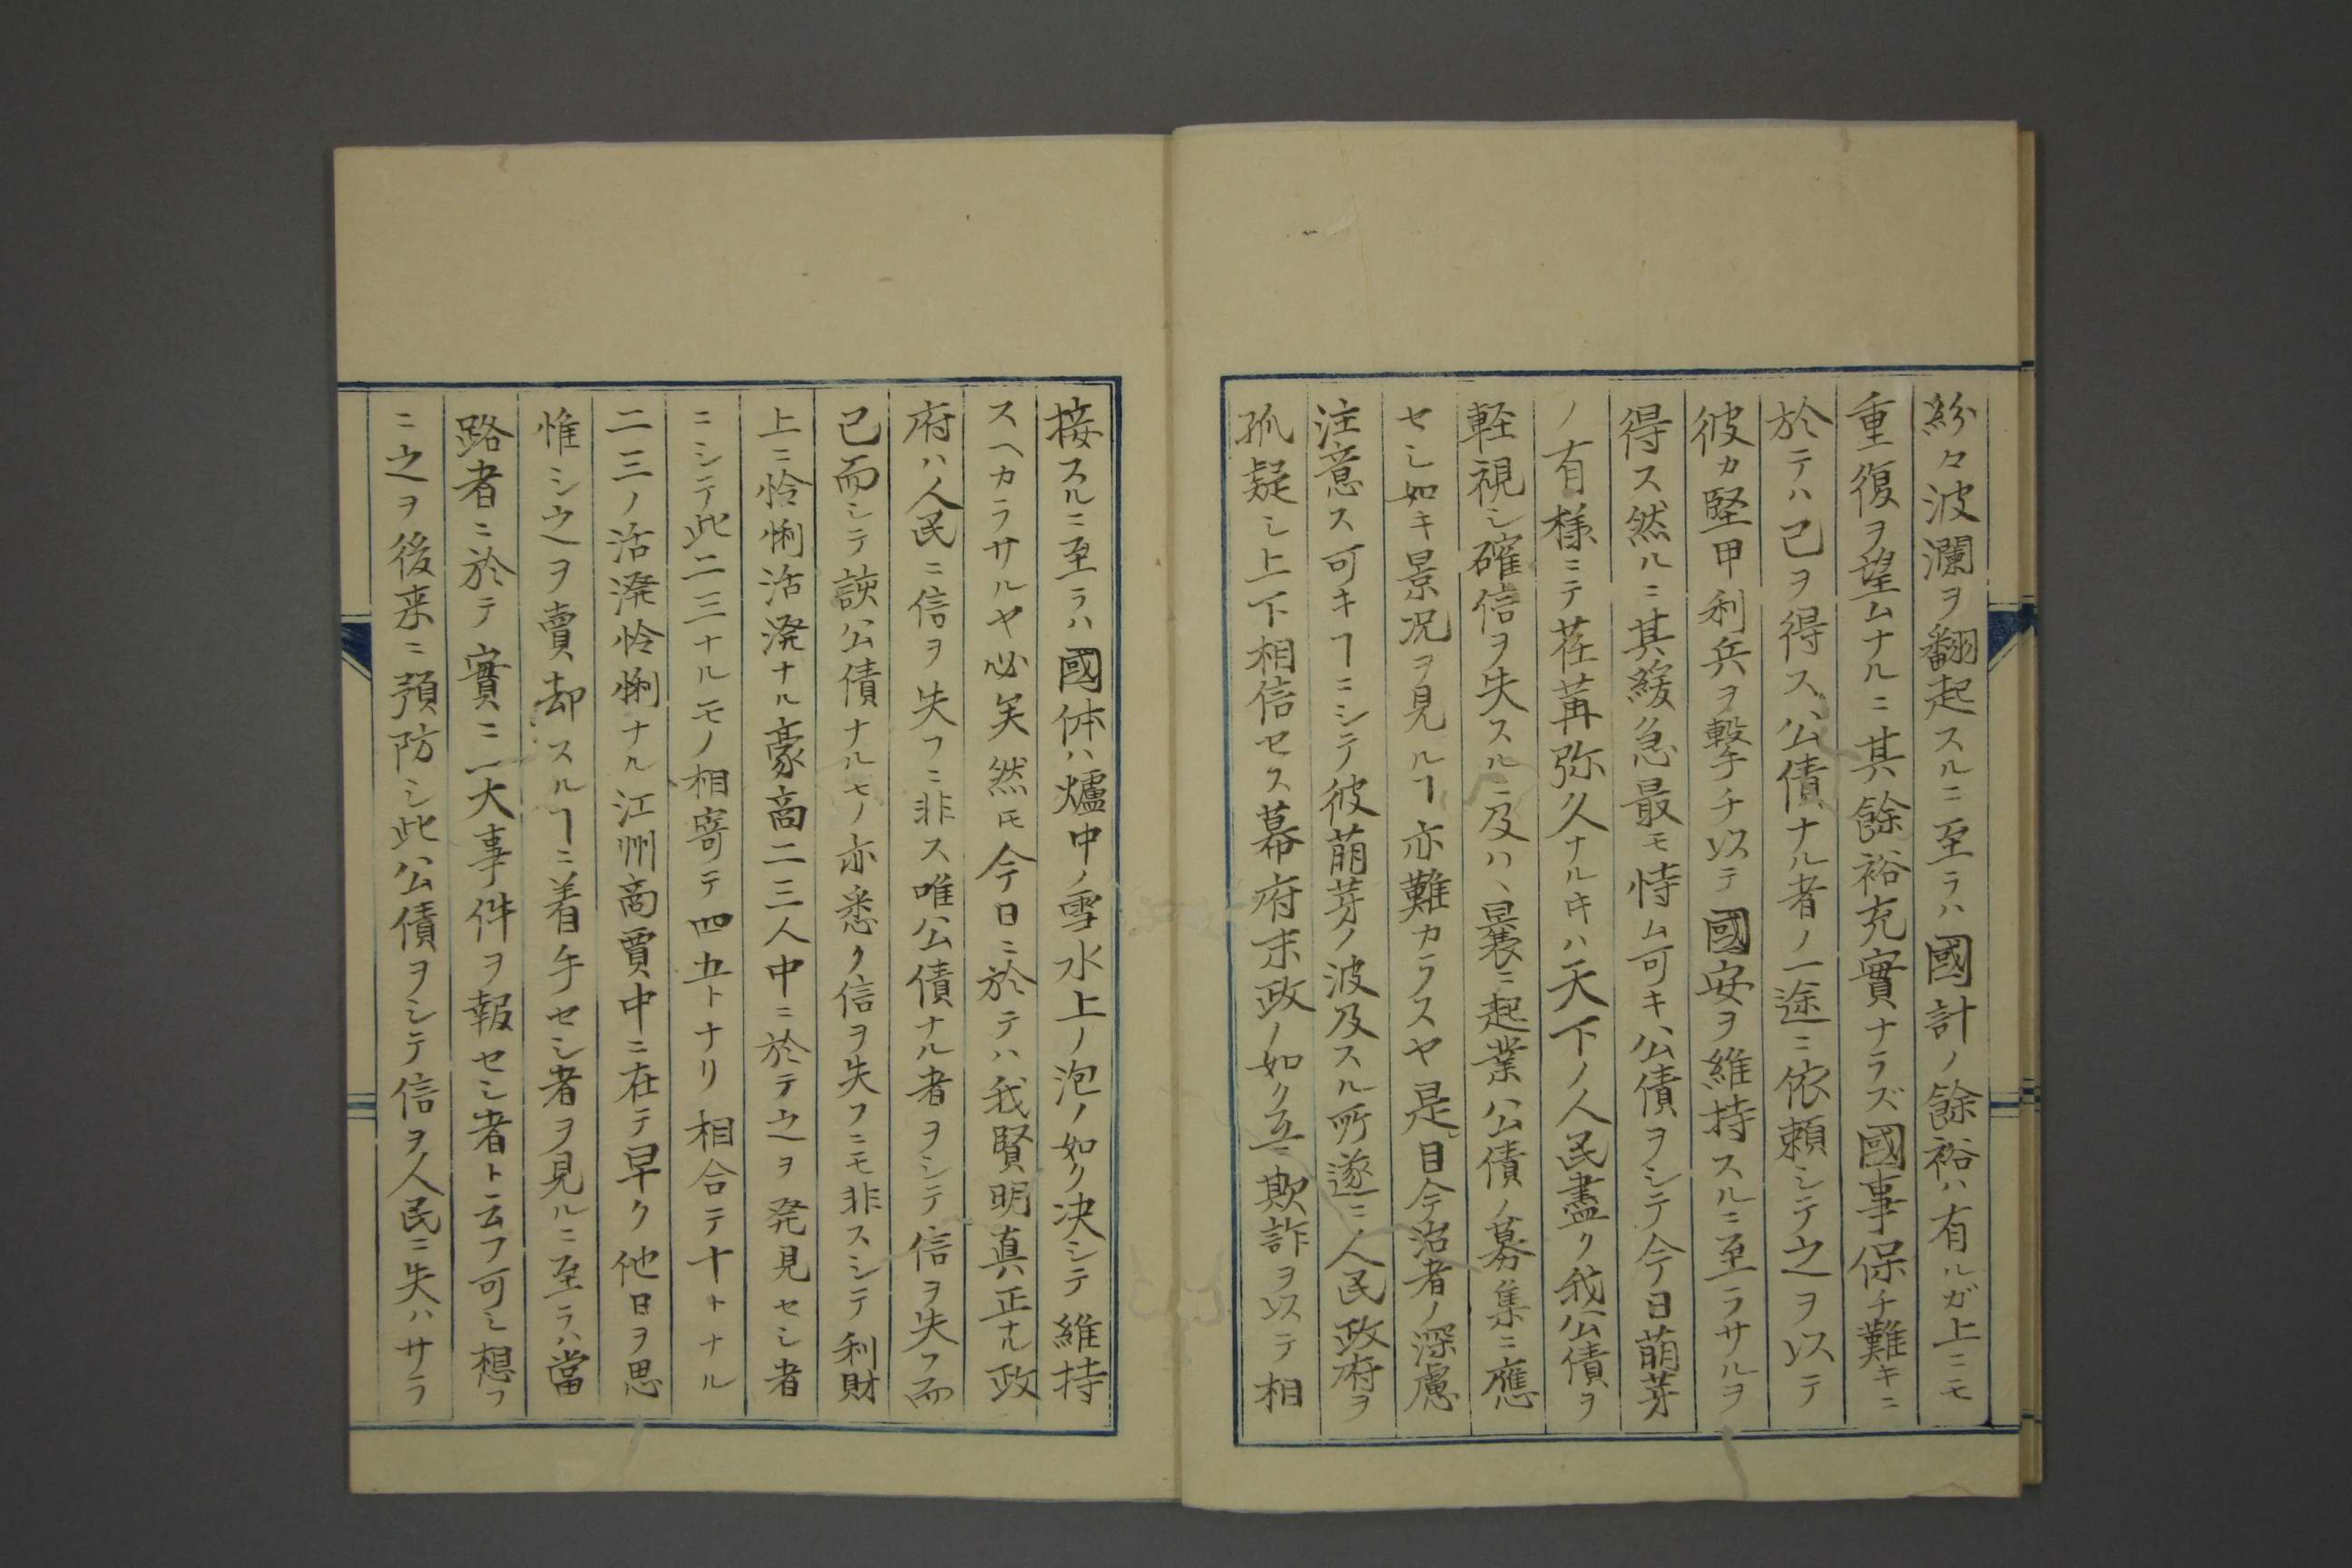 紛々波瀾ヲ翻起スルニ至ラハ國計ノ餘裕ハ有ルガ上ニモ
重復ヲ望ムナルニ其餘裕充實ナラズ國事保チ難キニ
於テハ已ヲ得ス公債ナル者ノ一途ニ依頼シテ之ヲ以テ
彼カ堅甲利兵ヲ撃チ以テ國安ヲ維持スルニ至ラサルヲ
得ス然ルニ其緩急最モ恃ム可キ公債ヲシテ今日萠芽
ノ有様ニテ荏苒弥久ナルキハ天下ノ人民盡ク我公債ヲ
軽視シ確信ヲ失スルニ及ハヽ曩ニ起業公債ノ募集ニ應
セシ如キ景況ヲ見ルヿ亦難カラスヤ是目今治者ノ深慮
注意ス可キヿニシテ彼萠芽ノ波及スル所遂ニ人民政府ヲ
狐疑シ上下相信セス幕府末政ノ如ク互ニ欺詐ヲ以テ相
接スルニ至ラハ國体ハ爐中ノ雪水上ノ泡ノ如ク决シテ維持
スヘカラサルヤ必矣然𪜈今日ニ於テハ我賢明真正ナル政
府ハ人民ニ信ヲ失フニ非ス唯公債ナル者ヲシテ信ヲ失フ而
已而シテ該公債ナルモノ亦悉ク信ヲ失フニモ非スシテ利財
上ニ怜悧活溌ナル豪商二三人中ニ於テ之ヲ発見セシ者
ニシテ此二三ナルモノ相寄テ四五トナリ相合テ十トナル
二三ノ活溌怜悧ナル江州商賈中ニ在テ早ク他日ヲ思
惟シ之ヲ賣却スルヿニ着手セシ者ヲ見ルニ至ラハ當
路者ニ於テ實ニ一大事件ヲ報セシ者ト云フ可シ想フ
ニ之ヲ後来ニ預防シ此公債ヲシテ信ヲ人民ニ失ハサラ